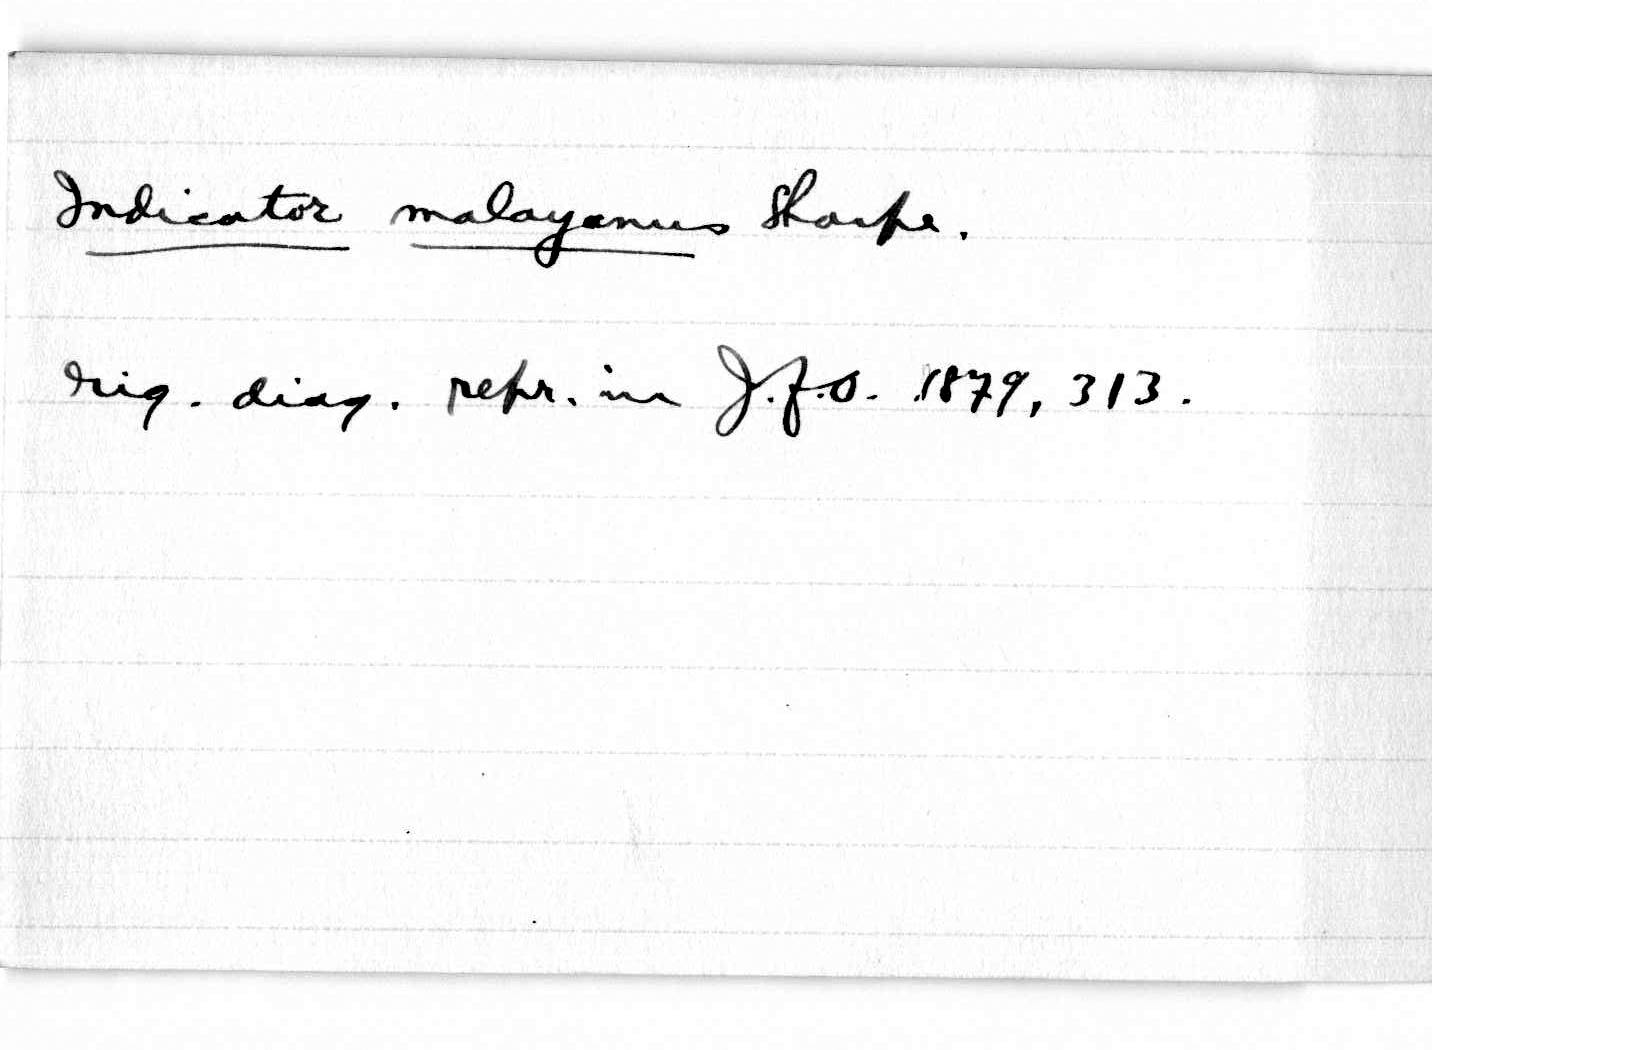 Indicator malayanus Sharpe.
rig. diag. repr. in J.f.O. 1879, 313.